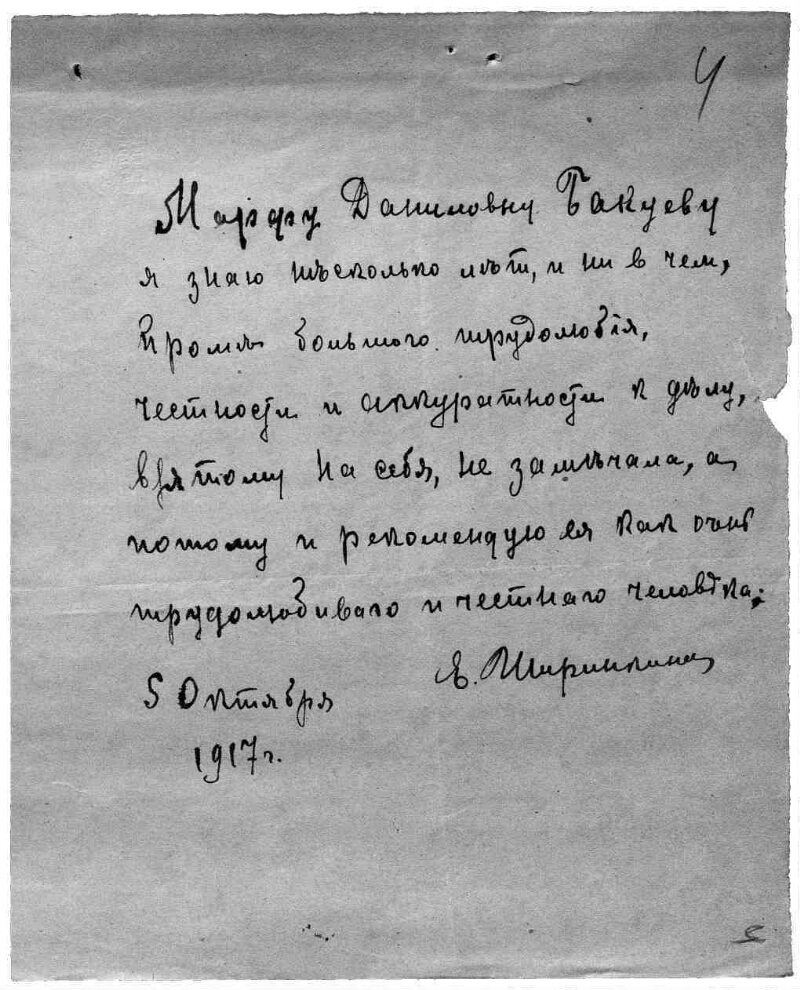 4
Марфу Даниловну Бакуеву
я знаю нѣсколько лѣт, и ни в чем,
кромѣ большого трудолюбія,
честности и аккуратности к дѣлу,
взятому на себя, не замѣчала, а
потому и рекомендую ея как очень
трудолюбиваго и честнаго человѣка;
Е. Ширинкина
5 Октября
1917 г.